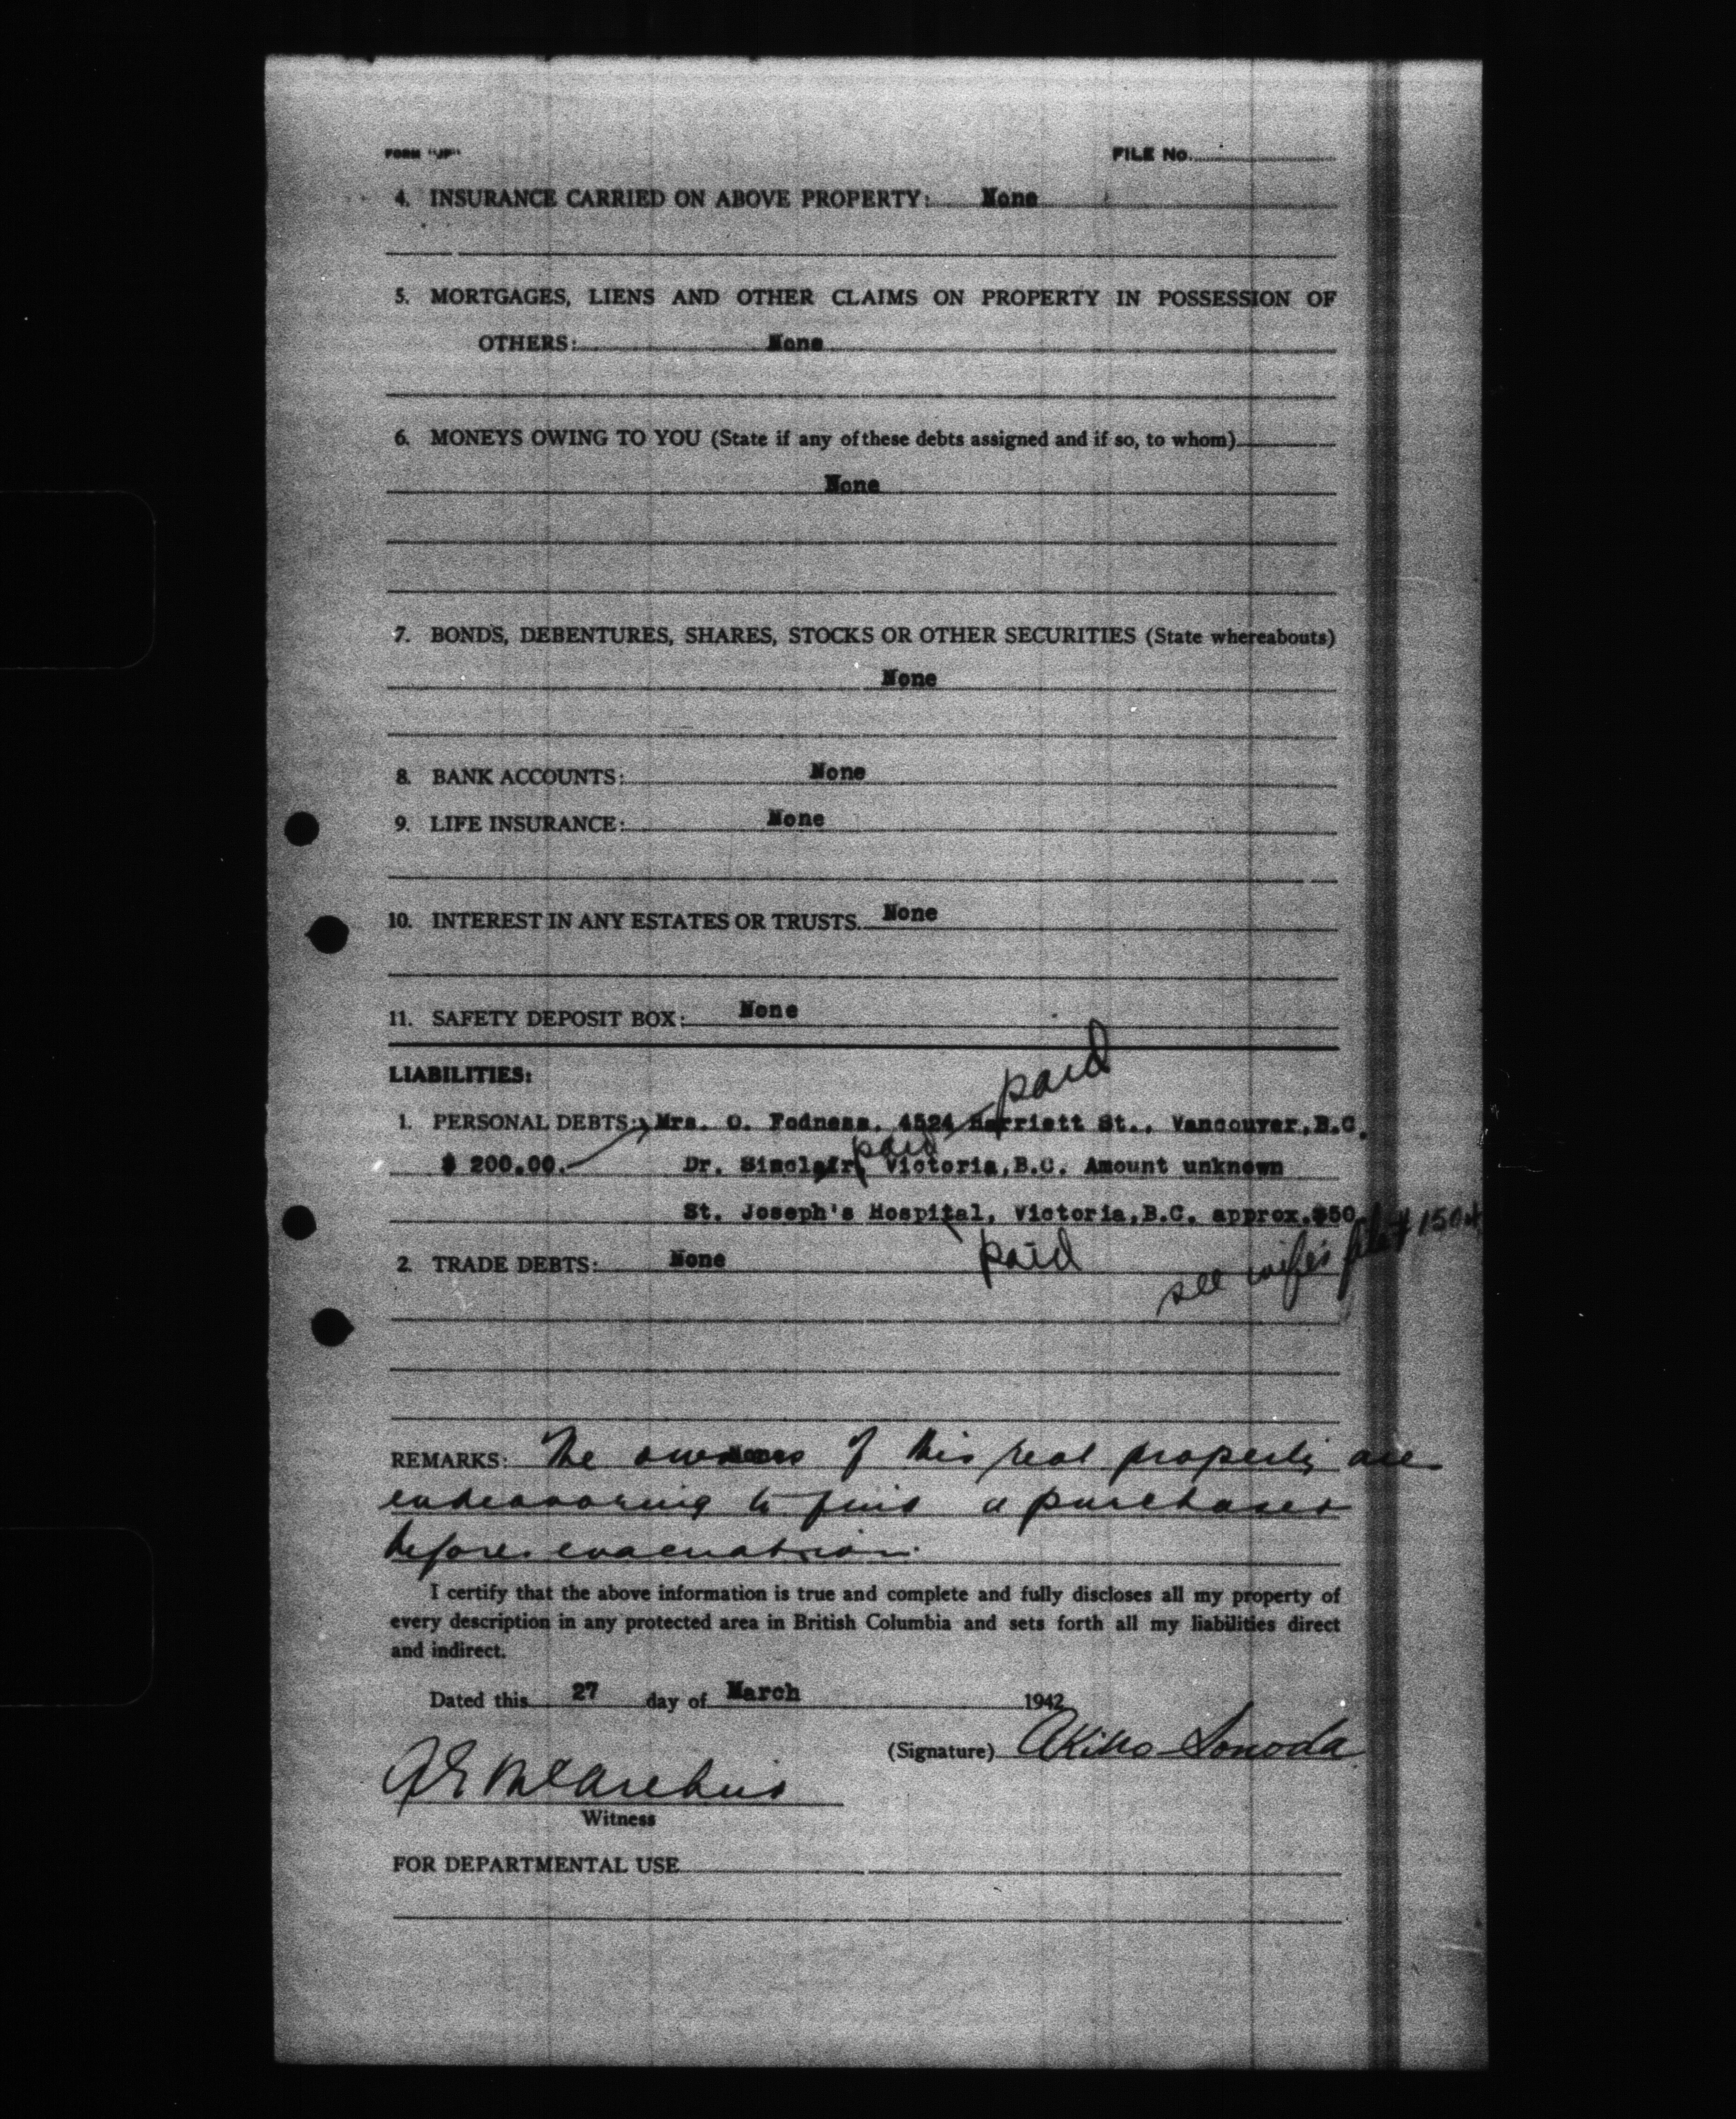 FORM "JP"
FILE No.
4. INSURANCE CARRIED ON ABOVE PROPERTY: None
5. MORTGAGES, LIENS AND OTHER CLAIMS ON PROPERTY IN POSSESSION OF
OTHERS: None
6. MONEYS OWING TO YOU (State if any of these debts assigned and if so, to whom)
None
7. BONDS, DEBENTURES, SHARES, STOCKS OR OTHER SECURITIES (State whereabouts)
None
8. BANK ACCOUNTS: None
9. LIFE INSURANCE: None
10. INTEREST IN ANY ESTATES OR TRUSTS. None
11. SAFETY DEPOSIT BOX: None
LIABILITIES:
paid
1. PERSONAL DEBTS: Mrs. O. Fodness, 4524 Harriett St., Vancouver, B.C.
paid
$ 200.00. Dr. Sinclair, Victoria, B.C. Amount unknown
St. Joseph's Hospital, Victoria, B.C. approx. $50
paid
see wife's file # 1504
2. TRADE DEBTS: None
REMARKS: The owners of this real property are
endeavouring to find a purchaser
before evacuation.
I certify that the above information is true and complete and fully discloses all my property of
every description in any protected area in British Columbia and sets forth all my liabilities direct
and indirect.
Dated this 27 day of March 1942
(Signature) Akiko Sonoda
Witness
FOR DEPARTMENTAL USE